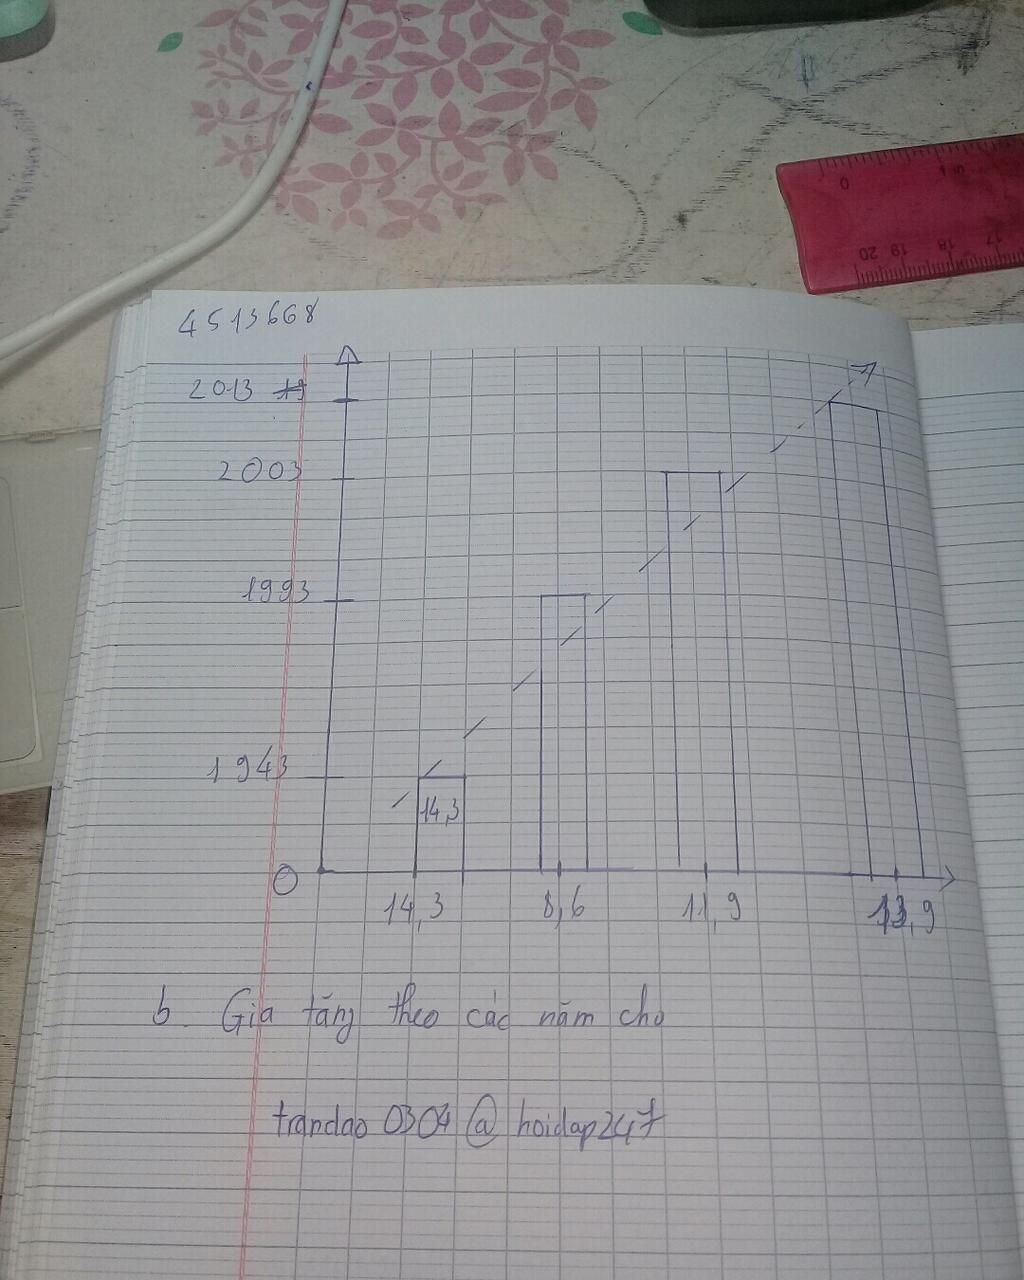 4513668
2013
2003
1993
1943
14,3
O
14,3 8,6 11,9 13,9
b. Gia tăng theo các năm cho
trandao 0304 @ hoidap247
0
20 19 18 17